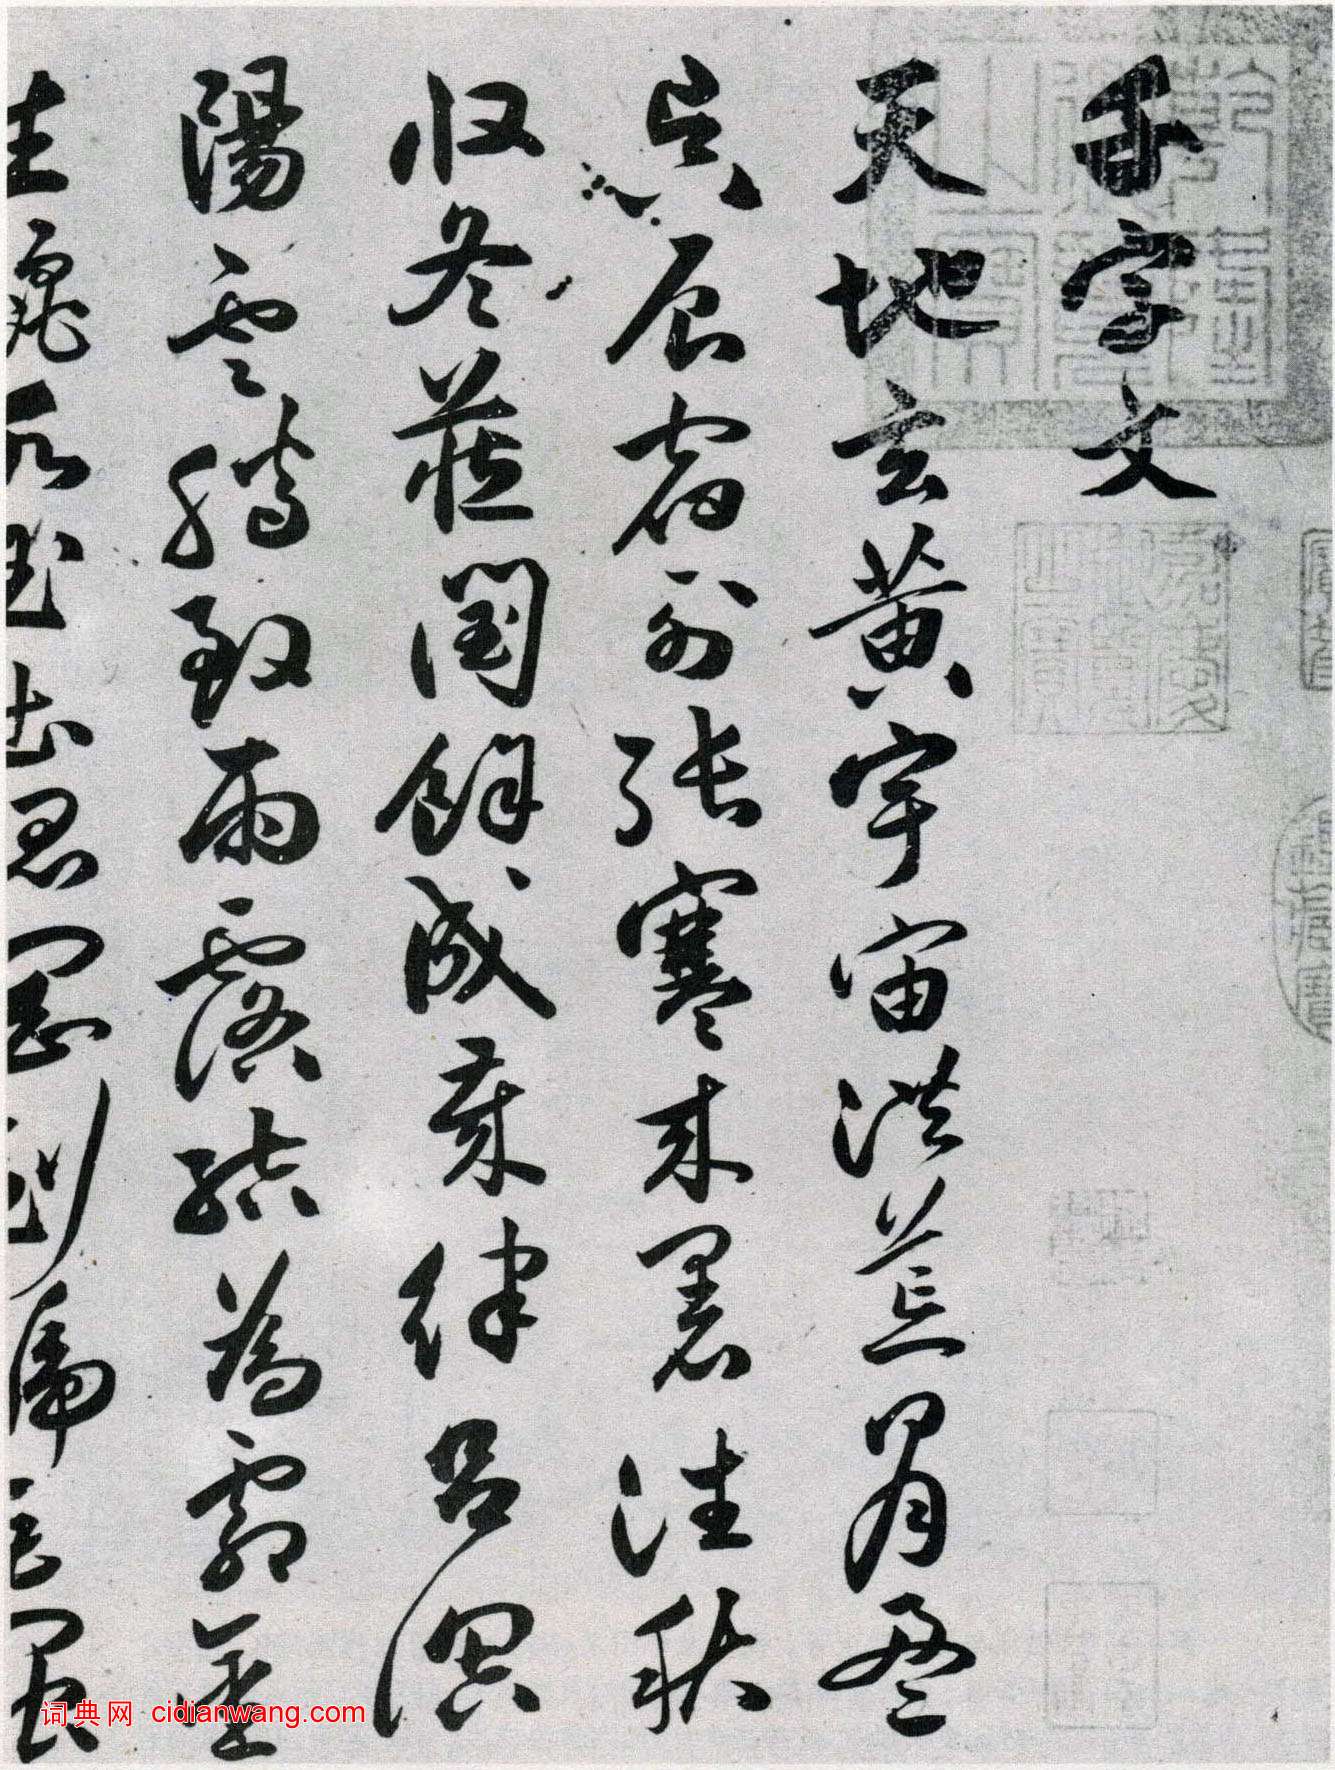 千字文
天地玄黃宇宙洪荒日月盈
昃辰宿列張寒來暑往秋
收冬藏閏餘成歲律呂調
陽雲騰致雨露結為霜金
生麗水玉出崑崗劍號巨闕
词典网 cidianwang.com